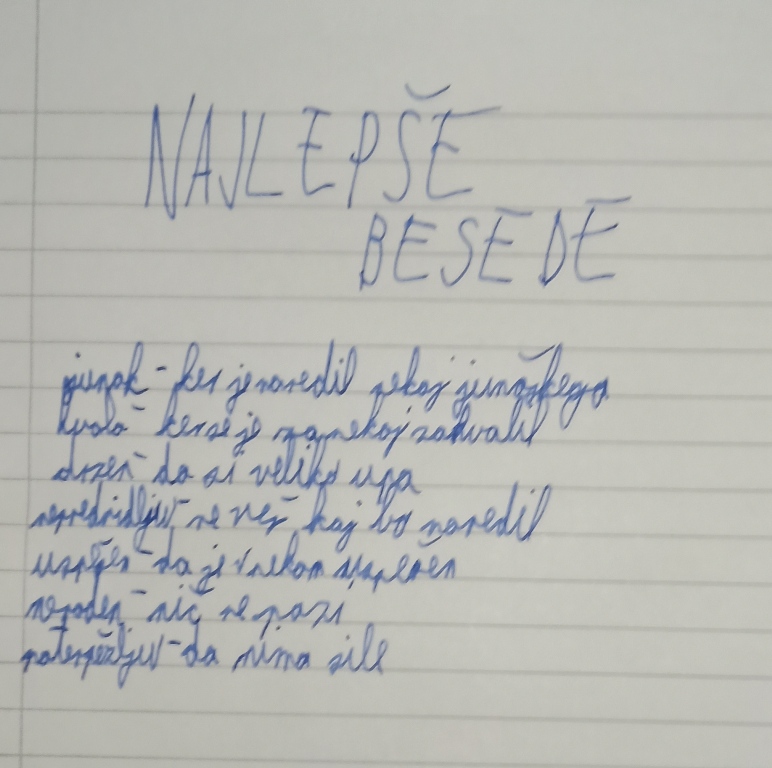 NAJLEPŠE
BESEDE
junak - ker je naredil nekaj junaškega
hvala - ker se je za nekaj zahvalil
drzen - da si veliko upa
nepredvidljiv - ne veš kaj bo naredil
uspešen - da je v nekem uspešen
neroden - nič ne pazi
potrpežljiv - da nima sile